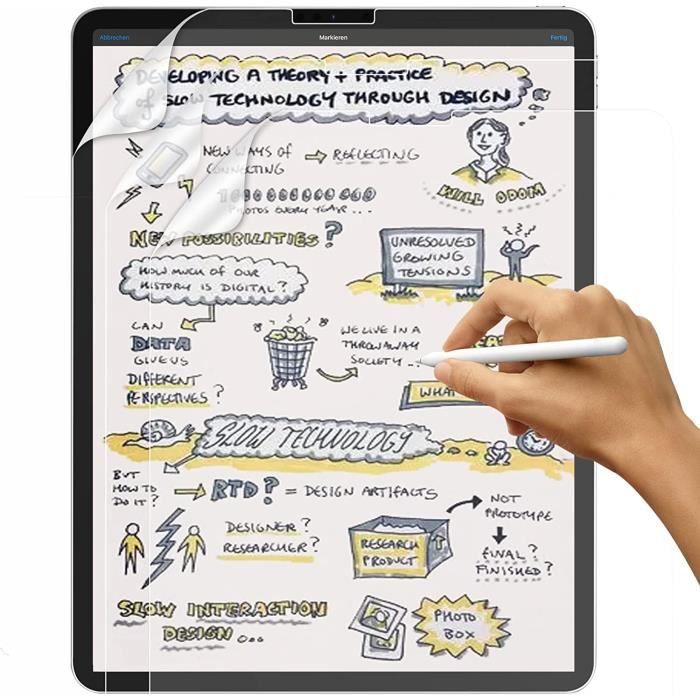 Abbrechen Markieren Fertig
DEVELOPING A THEORY + PRACTICE
of SLOW TECHNOLOGY THROUGH DESIGN
NEW WAYS of
CONNECTING
REFLECTING
PHOTOS EVERY YEAR ...
WILL ODOM
NEW POSSIBILITIES?
UNRESOLVED
GROWING
TENSIONS
HOW MUCH OF OUR
HISTORY IS DIGITAL?
CAN
DATA
GIVE US
DIFFERENT
PERSPECTIVES?
WE LIVE IN A
THROWAWAY
SOCIETY...
WHAT
SLOW TECHNOLOGY
BUT
HOW TO
DO IT?
RTD? = DESIGN ARTIFACTS
NOT
PROTOTYPE
DESIGNER?
RESEARCHER?
RESEARCH
PRODUCT
FINAL?
FINISHED?
SLOW INTERACTION
DESIGN...
PHOTO
BOX